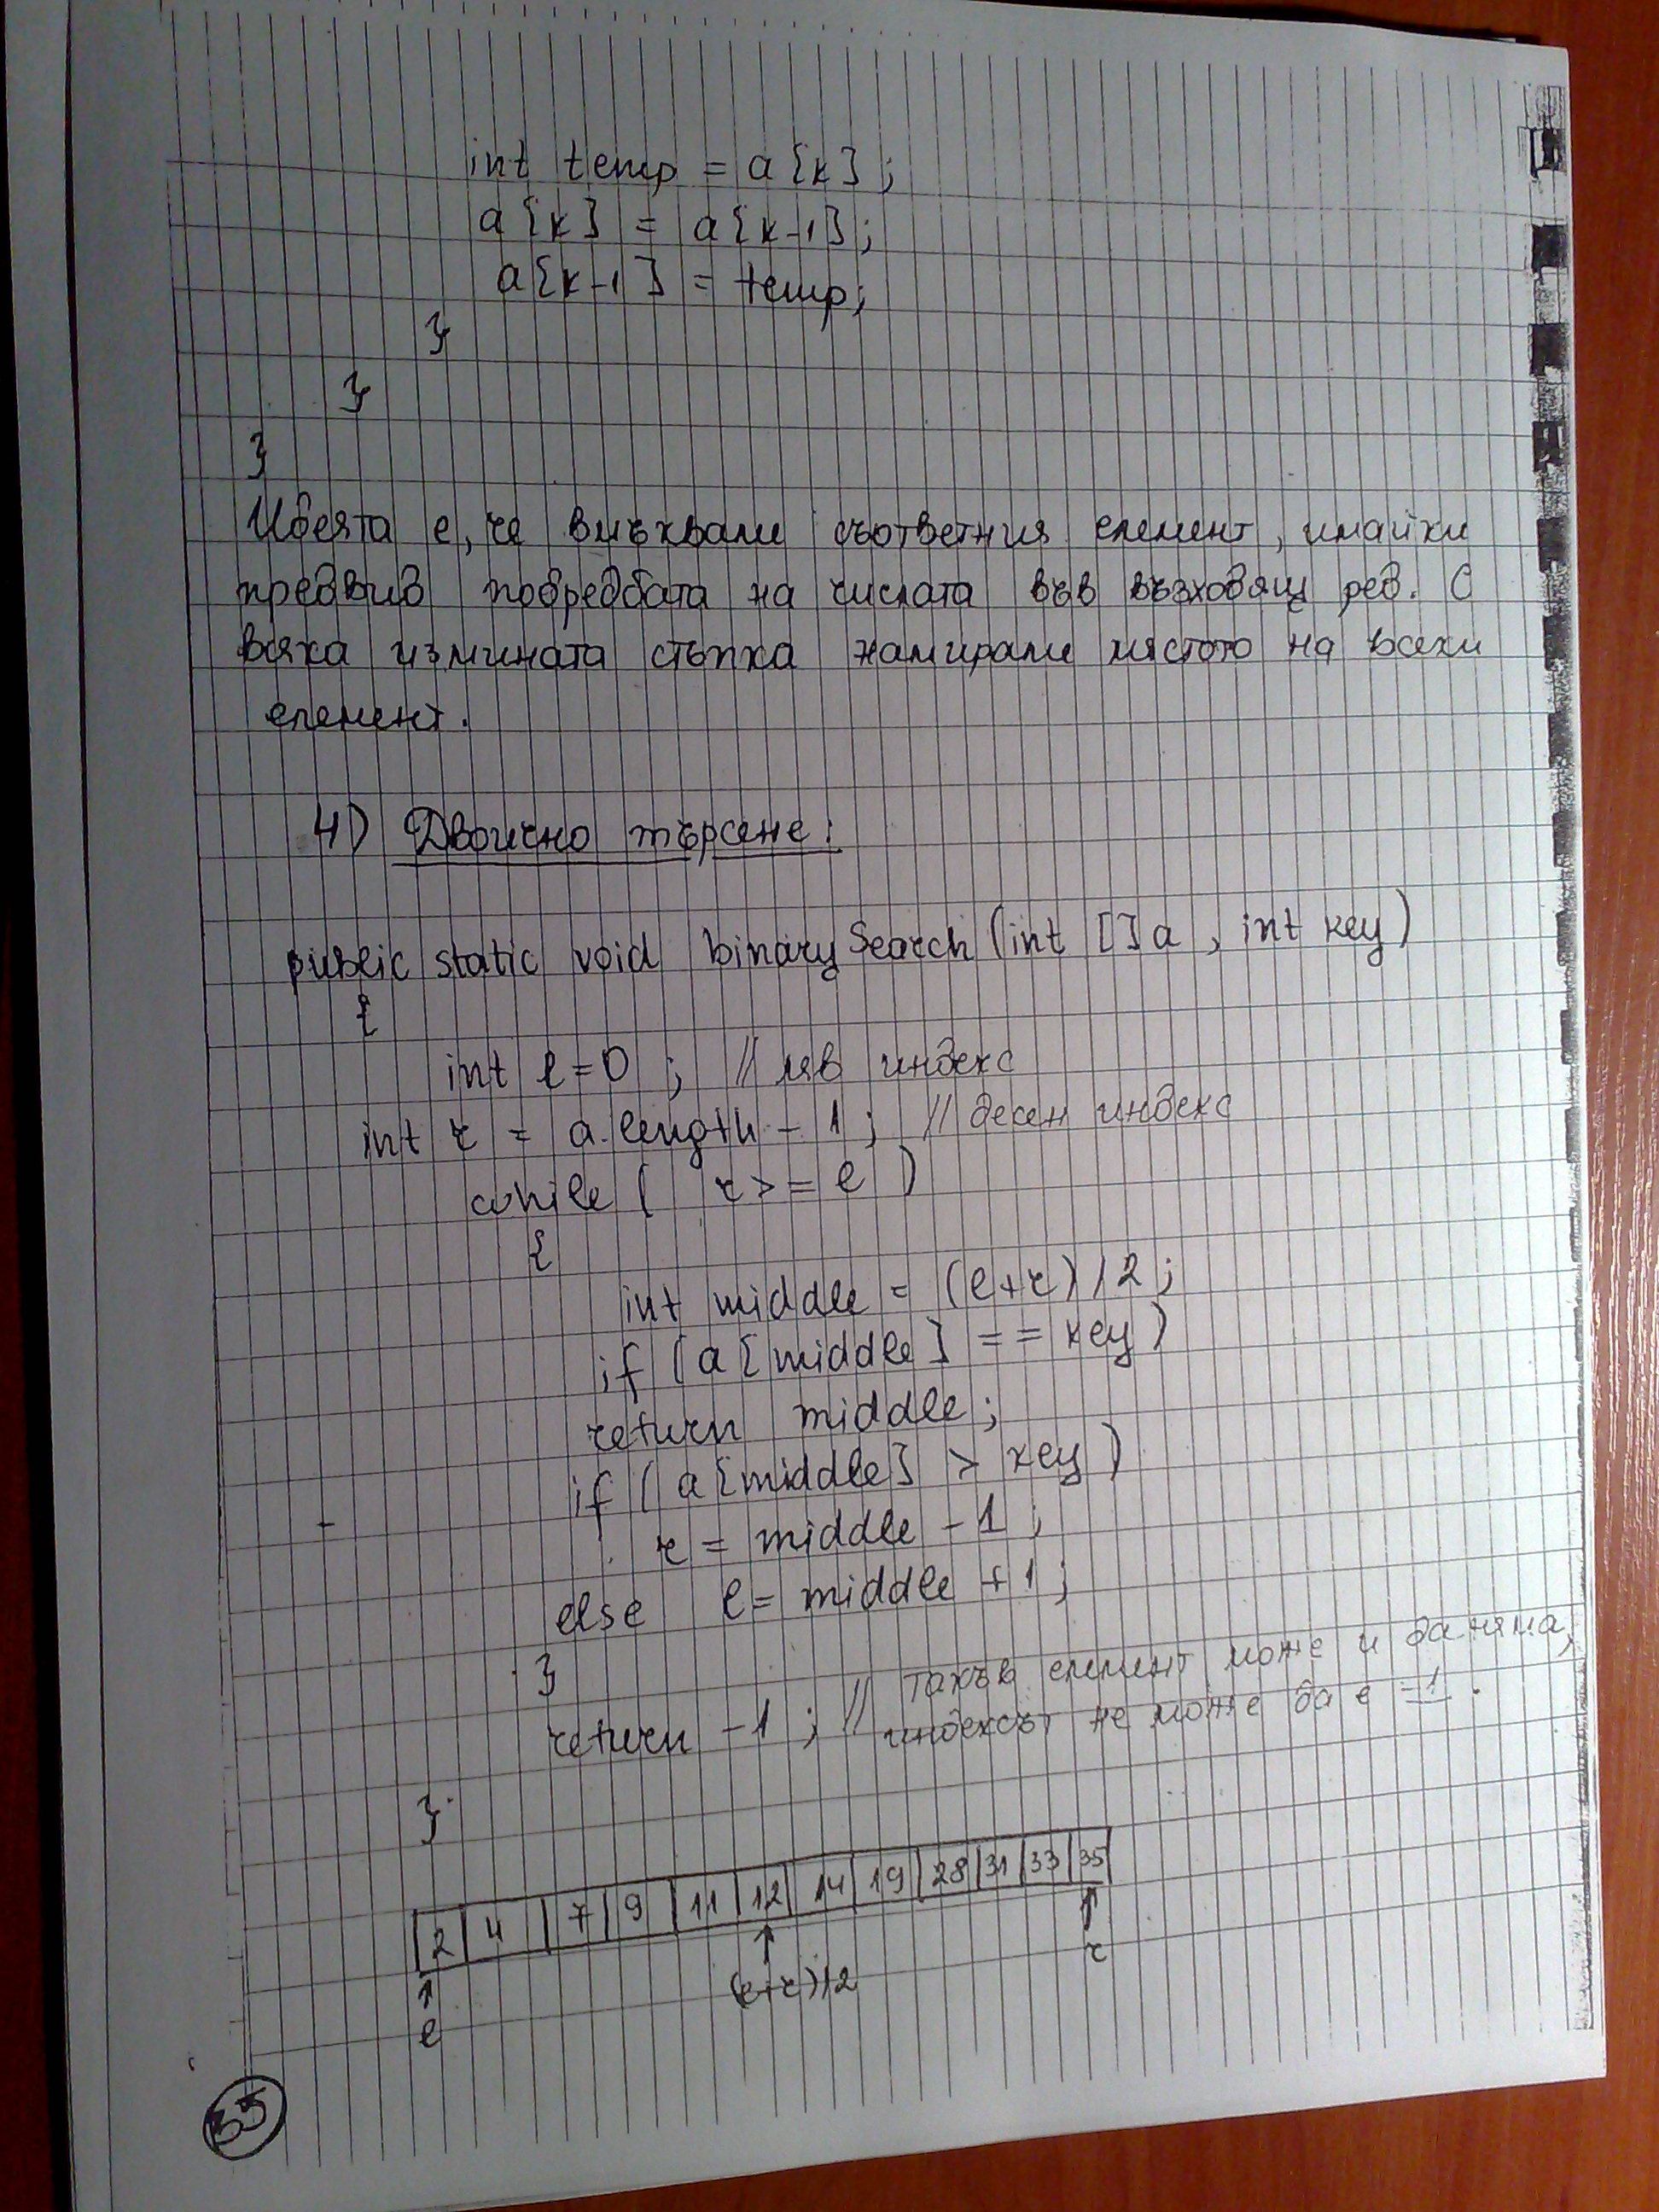 int temp = a[k];
a[k] = a[k-1];
a[k-1] = temp;
}
}
}
Идеята е, че вмъквали съответния елемент, имайки
предвид подредбата на числата във възходящ ред. С
всяка измината стъпка намирали мястото на всеки
елемент.
4) Двоично търсене:
public static void binarySearch (int []a, int key)
{
int l=0 ; // ляв индекс
int r = a.length - 1; // десен индекс
while ( r >= l )
{
int middle = (l+r)/2;
if (a[middle] == key)
return middle;
if (a[middle] > key)
r = middle - 1;
else l = middle + 1;
}
return -1 ; // такъв елемент може и да няма,
индексът не може да е -1.
}
2 4 7 9 11 12 14 19 28 31 33 35
l (l+r)/2 r
35